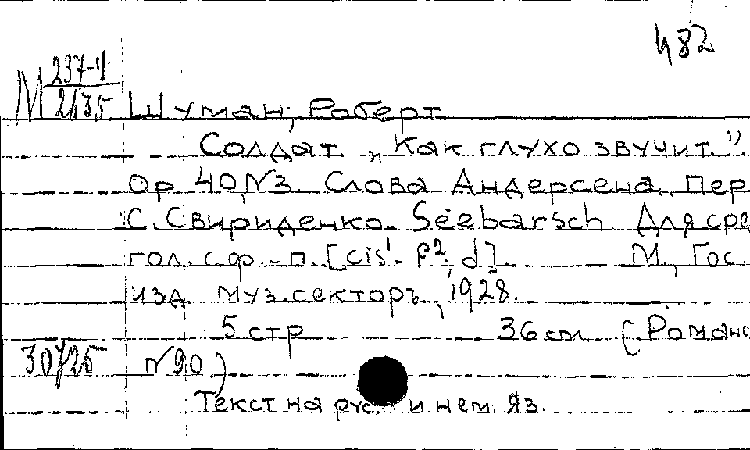 482
М 237-4
2135 Шуман, Роберт
Солдат „Как глухо звучит."
Op 40, N3. Слова Андерсена, пер
С. Свириденко. Seebarsch Для сре
гол. с ф.-п. [cis¹- f², d]. М., Гос.
изд муз.секторъ, 1928.
5 стр 36 см (Романс
30725 N 90)
Текст на рус и нем. яз.